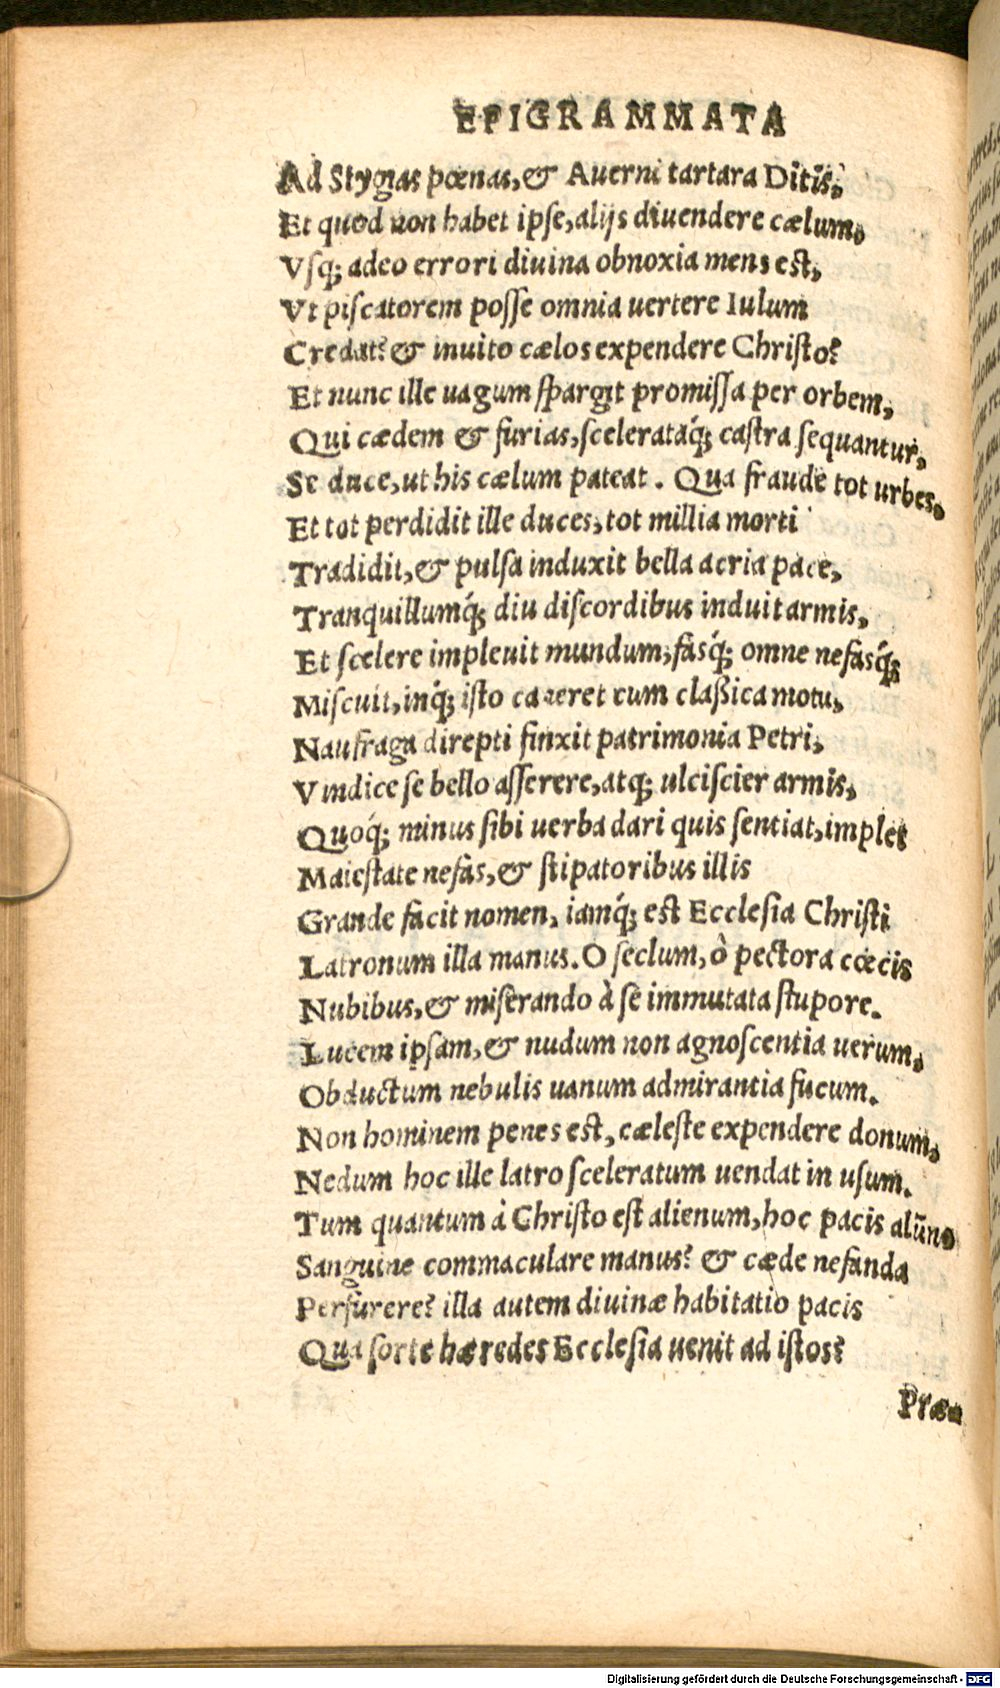 EPIGRAMMATA
Ad Stygias pœnas, & Auerni tartara Ditis,
Et quod non habet ipse, alijs diuendere cælum,
Vsq; adeo errori diuina obnoxia mens est,
Vt piscatorem posse omnia uertere Iulum
Credat? & inuito cælos expendere Christo?
Et nunc ille uagum spargit promissa per orbem,
Qui cædem & furias, scelerataq́; castra sequantur,
Se duce, ut his cælum pateat. Qua fraude tot urbes,
Et tot perdidit ille duces, tot millia morti
Tradidit, & pulsa induxit bella acria pace,
Tranquillumq́; diu discordibus induit armis,
Et scelere impleuit mundum, fasq́; omne nefasq́;
Miscuit, inq́; isto careret cum claßica motu,
Naufraga direpti finxit patrimonia Petri,
Vindice se bello asserere, atq; ulciscier armis,
Quoq́; minus sibi uerba dari quis sentiat, implet
Maiestate nefas, & stipatoribus illis
Grande facit nomen, iamq́; est Ecclesia Christi
Latronum illa manus. O seclum, ò pectora cœcis
Nubibus, & miserando à se immutata stupore.
Lucem ipsam, & nudum non agnoscentia uerum,
Obductum nebulis uanum admirantia fucum.
Non hominem penes est, cæleste expendere donum,
Nedum hoc ille latro sceleratum uendat in usum.
Tum quantum à Christo est alienum, hoc pacis alũno
Sanguine commaculare manus? & cæde nefanda
Perfurere? illa autem diuinæ habitatio pacis
Qua sorte hæredes Ecclesia uenit ad istos?
Præ-
Digitalisierung gefördert durch die Deutsche Forschungsgemeinschaft - DFG